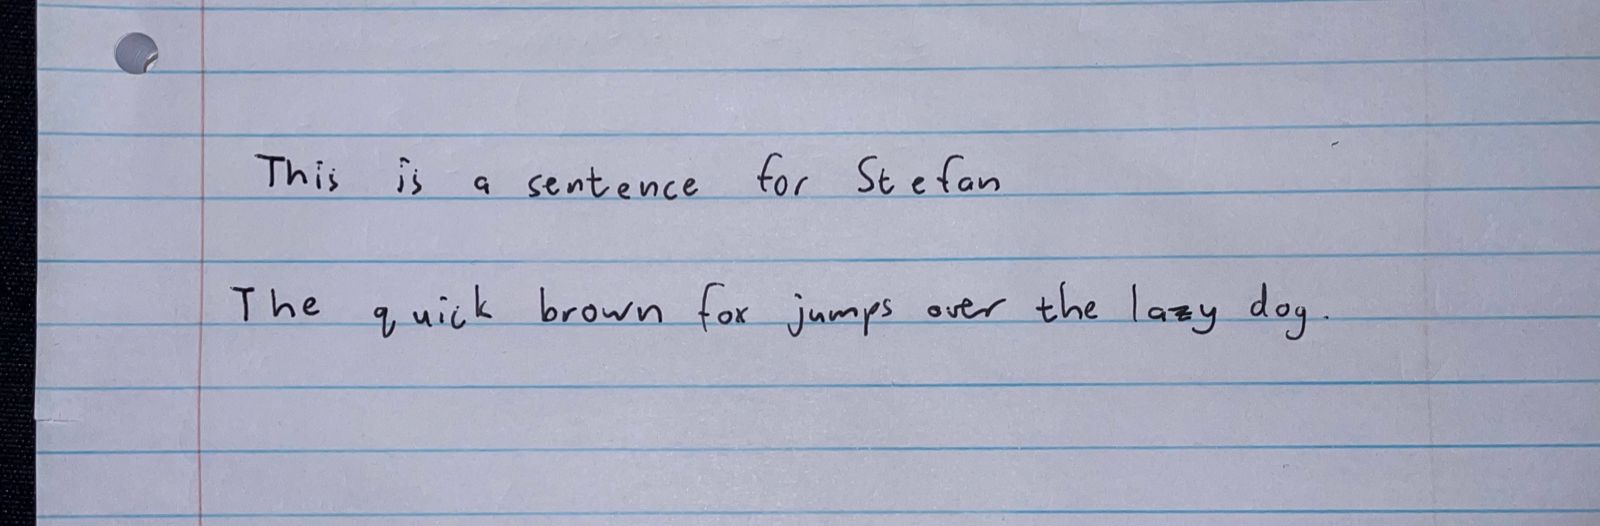 This is a sentence for Stefan
The quick brown fox jumps over the lazy dog.